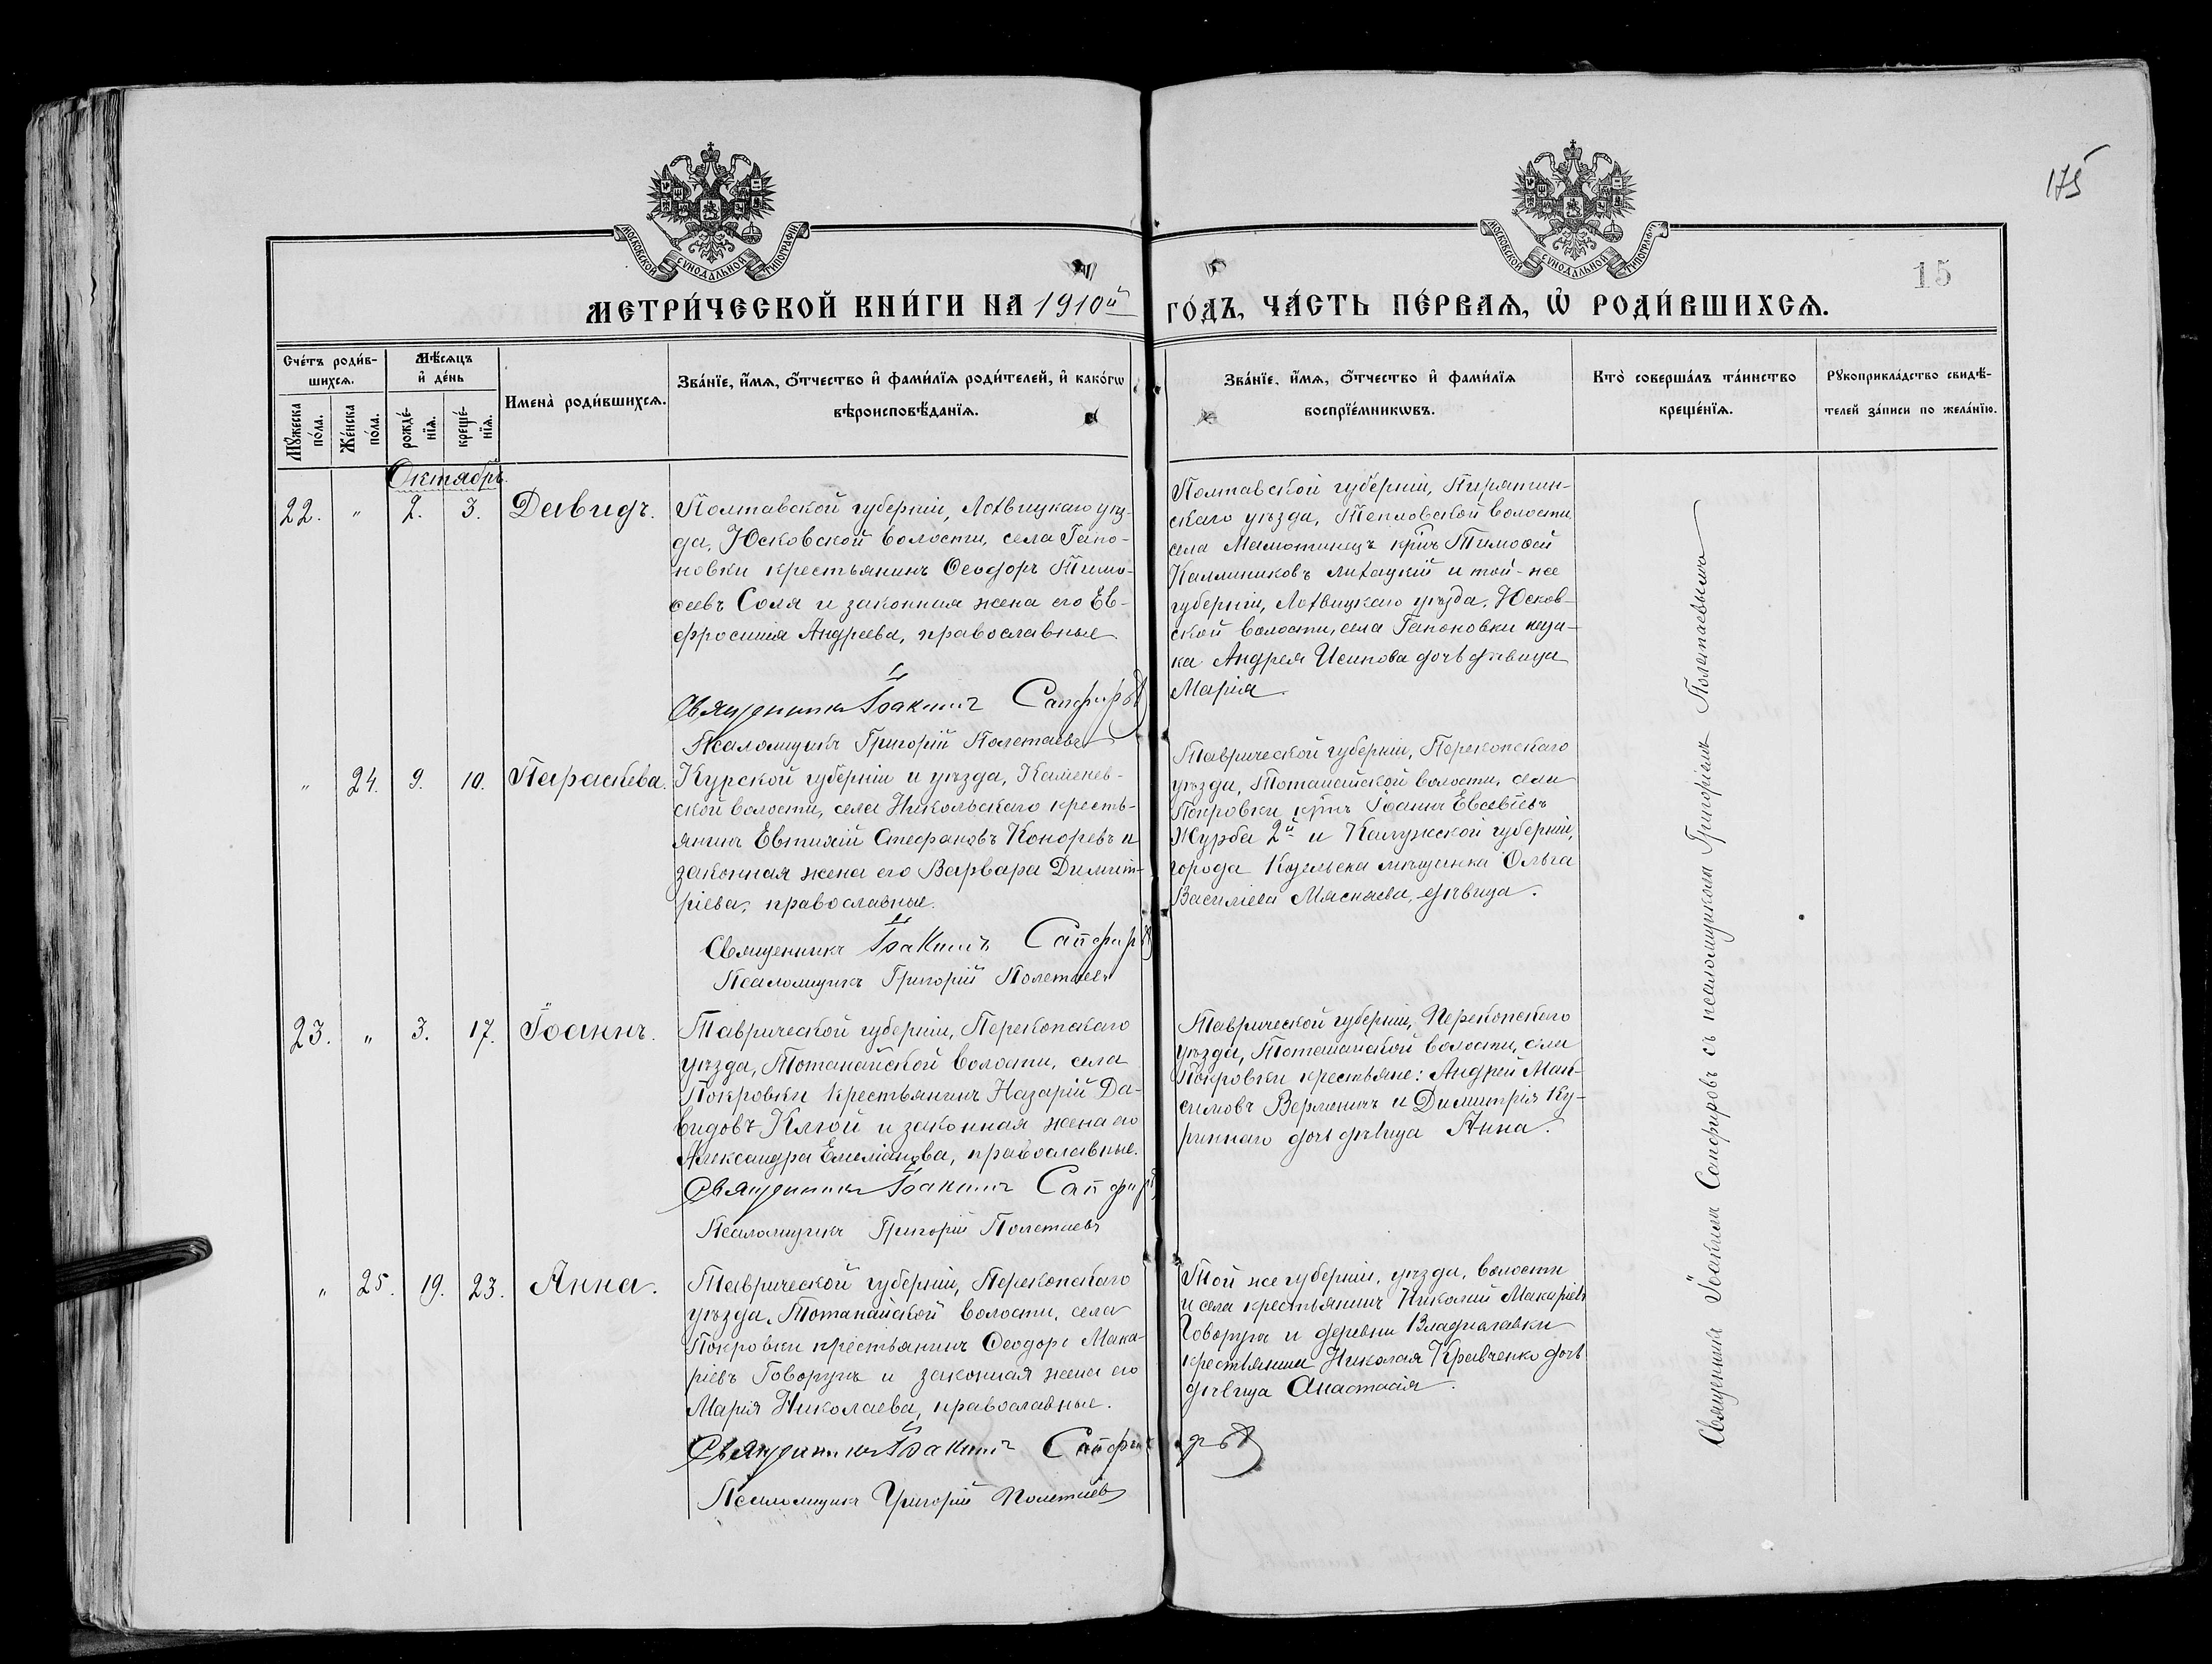 175
МОСКОВСКОЙ СѴНОДАЛЬНОЙ ТИПОГРАФІИ
МОСКОВСКОЙ СѴНОДАЛЬНОЙ ТИПОГРАФІИ
15
МЕТРИ́ЧЕСКОЙ КНИ́ГИ НА 1910й ГО́ДЪ, ЧА́СТЬ ПЕ́РВАѦ, Ѡ҆ РОДИ́ВШИХСѦ.
Сче́тъ роди́в-
шихсѧ.
Мѣ́сѧцъ
и҆ де́нь
Мꙋ́жеска
по́ла.
Же́нска
по́ла.
рожде́-
нїѧ.
креще́-
нїѧ.
Имена̀ роди́вшихсѧ.
Зва́нїе, и҆́мѧ, ѻ҆́тчество и҆ фами́лїѧ роди́телей, и҆ како́гѡ
вѣроисповѣ́данїѧ.
Зва́нїе, и҆́мѧ, ѻ҆́тчество и҆ фами́лїѧ
воспрїе́мникѡвъ.
Кто̀ соверша́лъ та́инство
креще́нїѧ.
Рꙋкоприкла́дство свидѣ́-
телей за́писи по жела́нїю.
Октябрь.
22. " 2. 3. Давидъ.
Полтавской губерніи, Лохвицкаго уѣз-
да, Юсковской волости, села Гапо-
новки крестьянинъ Ѳеодоръ Тимо-
ѳеевъ Соля и законная жена его Ев-
фросинія Андреева, православные.
Священникъ Іоакимъ Сапфировъ
Псаломщикъ Григорій Полетаевъ
Полтавской губерніи, Пирятин-
скаго уѣзда, Тепловской волости
села Мамотинецъ кр҃нъ Тимоѳей
Каллиниковъ Лихацкій и той-же
губерніи, Лохвицкаго уѣзда, Юсков-
ской волости, села Гапоновки каза-
ка Андрея Исипова дочь дѣвица
Марія.
" 24. 9. 10. Параскева.
Курской губерніи и уѣзда, Каменев-
ской волости, села Никольскаго кресть-
янинъ Евтихій Стефановъ Коноревъ и
законная жена его Варвара Димит-
ріева, православные.
Священникъ Іоакимъ Сапфировъ
Псаломщикъ Григорій Полетаевъ
Таврической губерніи, Перекопскаго
уѣзда, Тотанайской волости, села
Покровки кр҃нъ Іоаннъ Евсевіевъ
Журба 2й и Калужской губерніи,
города Козельска мѣщанка Ольга
Василіева Мяснаева, дѣвица.
23. " 3. 17. Іоаннъ.
Таврической губерніи, Перекопскаго
уѣзда, Тотанайской волости, села
Покровки крестьянинъ Назарій Да-
видовъ Клюй и законная жена его
Александра Емеліанова, православные.
Священникъ Іоакимъ Сапфировъ
Псаломщикъ Григорій Полетаевъ
Таврической губерніи, Перекопскаго
уѣзда, Тотанайской волости, села
Покровки крестьяне: Андрей Мак-
симовъ Верменичъ и Димитрія Ку-
риннаго дочь дѣвица Анна.
" 25. 19. 23. Анна.
Таврической губерніи, Перекопскаго
уѣзда, Тотанайской волости, села
Покровки крестьянинъ Ѳеодоръ Мака-
ріевъ Говорунъ и законная жена его
Марія Николаева, православные.
Священникъ Іоакимъ Сапфировъ
Псаломщикъ Григорій Полетаевъ
Той же губерніи, уѣзда, волости
и села крестьянинъ Николай Макаріевъ
Говорунъ и деревни Владиславки
крестьянина Николая Кравченко дочь
дѣвица Анастасія.
Священникъ Іоакимъ Сапфировъ съ псаломщикомъ Григоріемъ Полетаевымъ